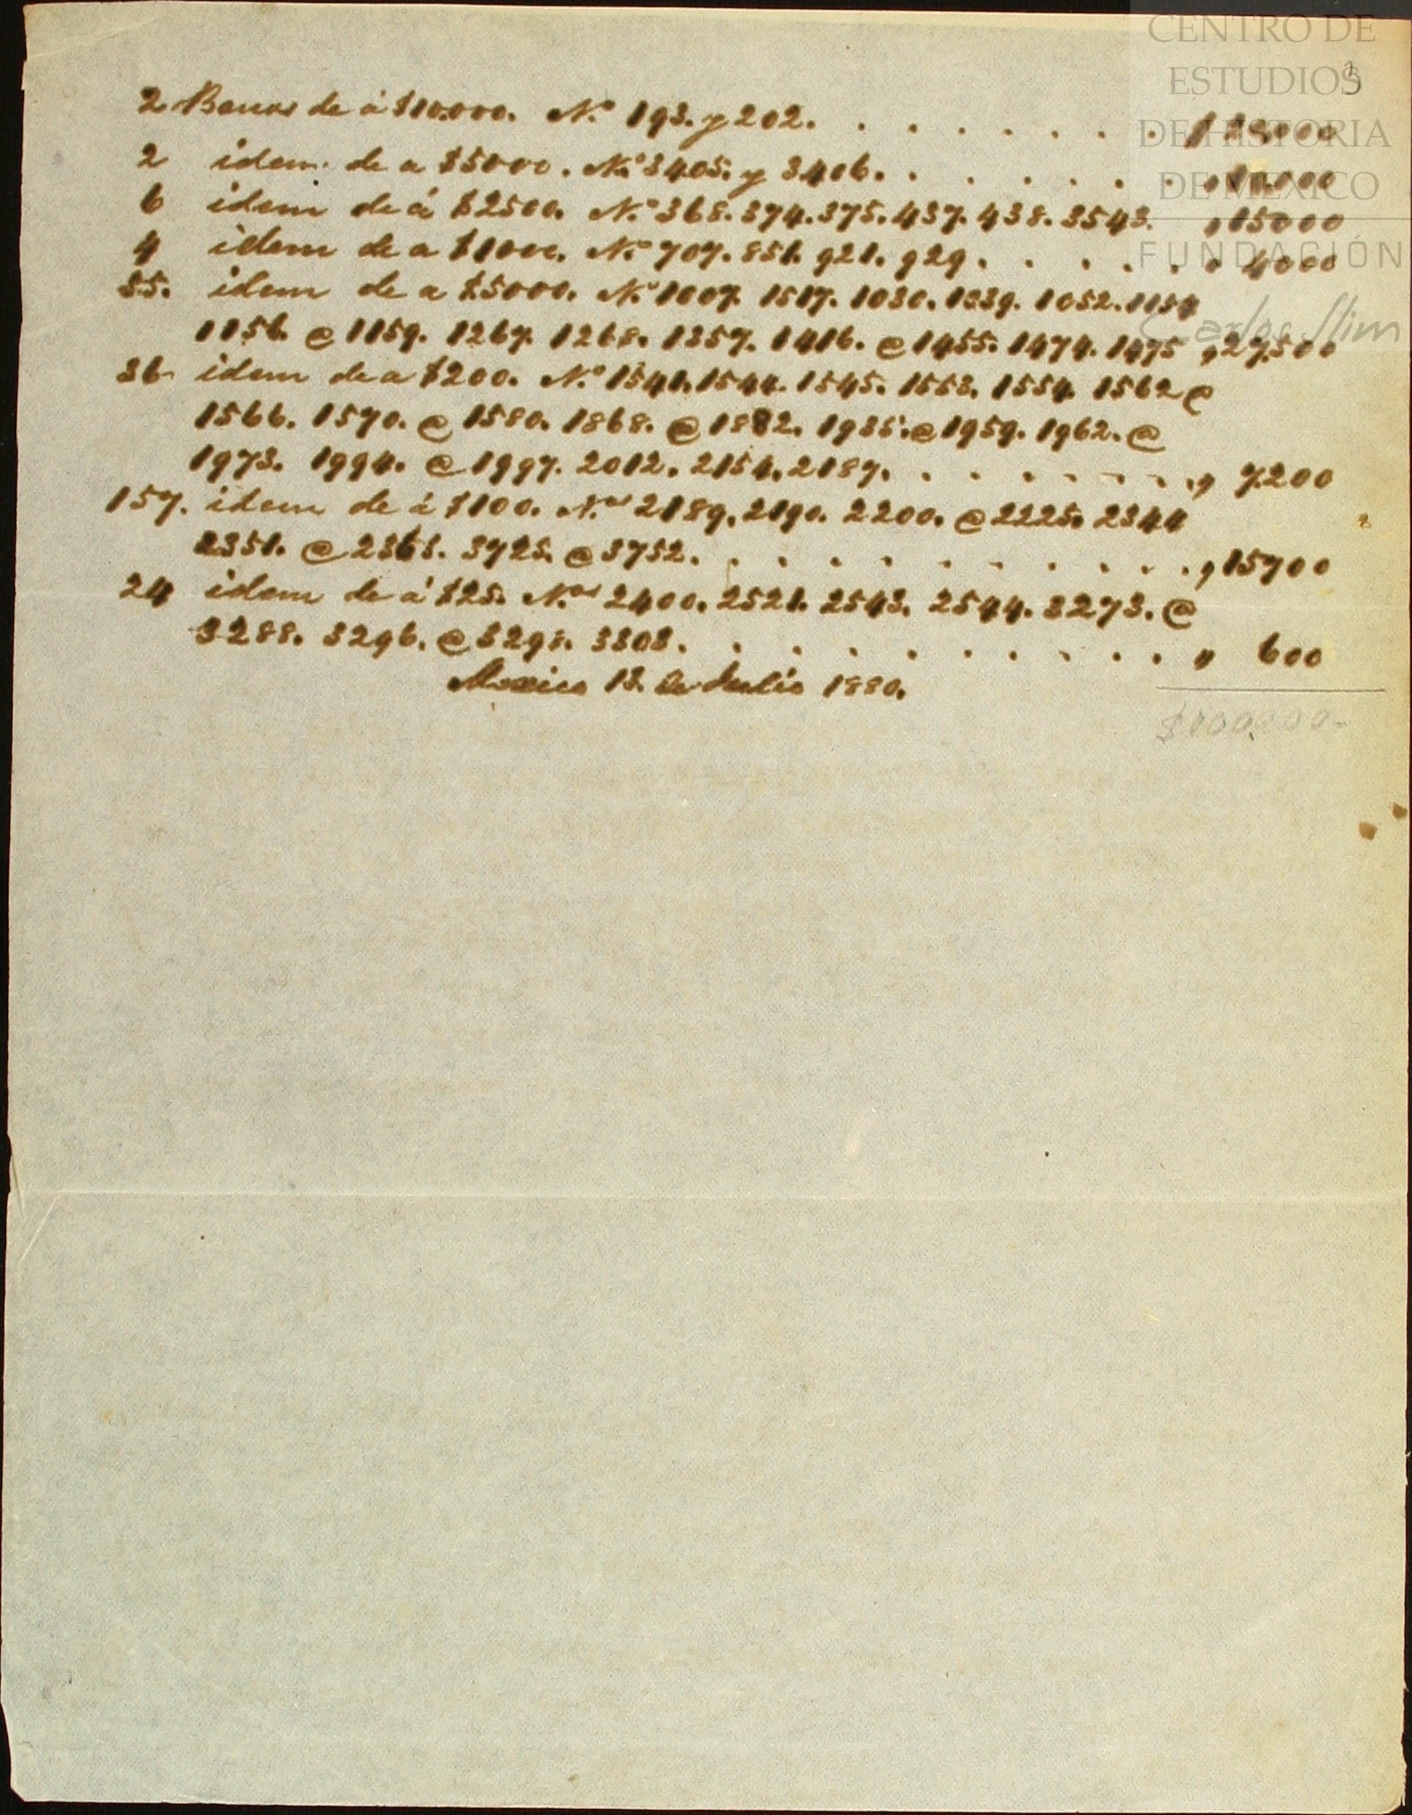 CENTRO DE
ESTUDIOS
DE HISTORIA
DE MEXICO
FUNDACIÓN
Carlos Slim
3
2 Bonos de á $10.000. N.º 193. y 202. . . . . . . . . $ 20.000
2 idem. de a $5000. N.º 3405. y 3406. . . . . . . . „ 10.000
6 idem de á $2500. N.º 368. 374. 375. 437. 438. 3543. „ 15000
4 idem de a $1000. N.º 707. 851. 921. 929. . . . . . „ 4000
55. idem de a $5000. N.º 1007. 1517. 1030. 1339. 1052. 1154
1156. @ 1159. 1267. 1268. 1357. 1416. @ 1455. 1474. 1475 „ 27,500
36 idem de a $200. N.º 1541. 1544. 1545. 1553. 1554. 1562 @
1566. 1570. @ 1580. 1868. @ 1882. 1935. @ 1959. 1962. @
1973. 1994. @ 1997. 2012. 2154. 2187. . . . . . . . „ 7.200
157. idem de á $100. N.os 2189. 2190. 2200. @ 2225. 2344
2351. @ 2363. 3725. @ 3752. . . . . . . . . . . . „ 15700
24 idem de á $25. N.os 2400. 2521. 2543. 2544. 3273. @
3288. 3296. @ 3298. 3303. . . . . . . . . . . „ 600
Mexico 13. de Julio 1880.
$100000-